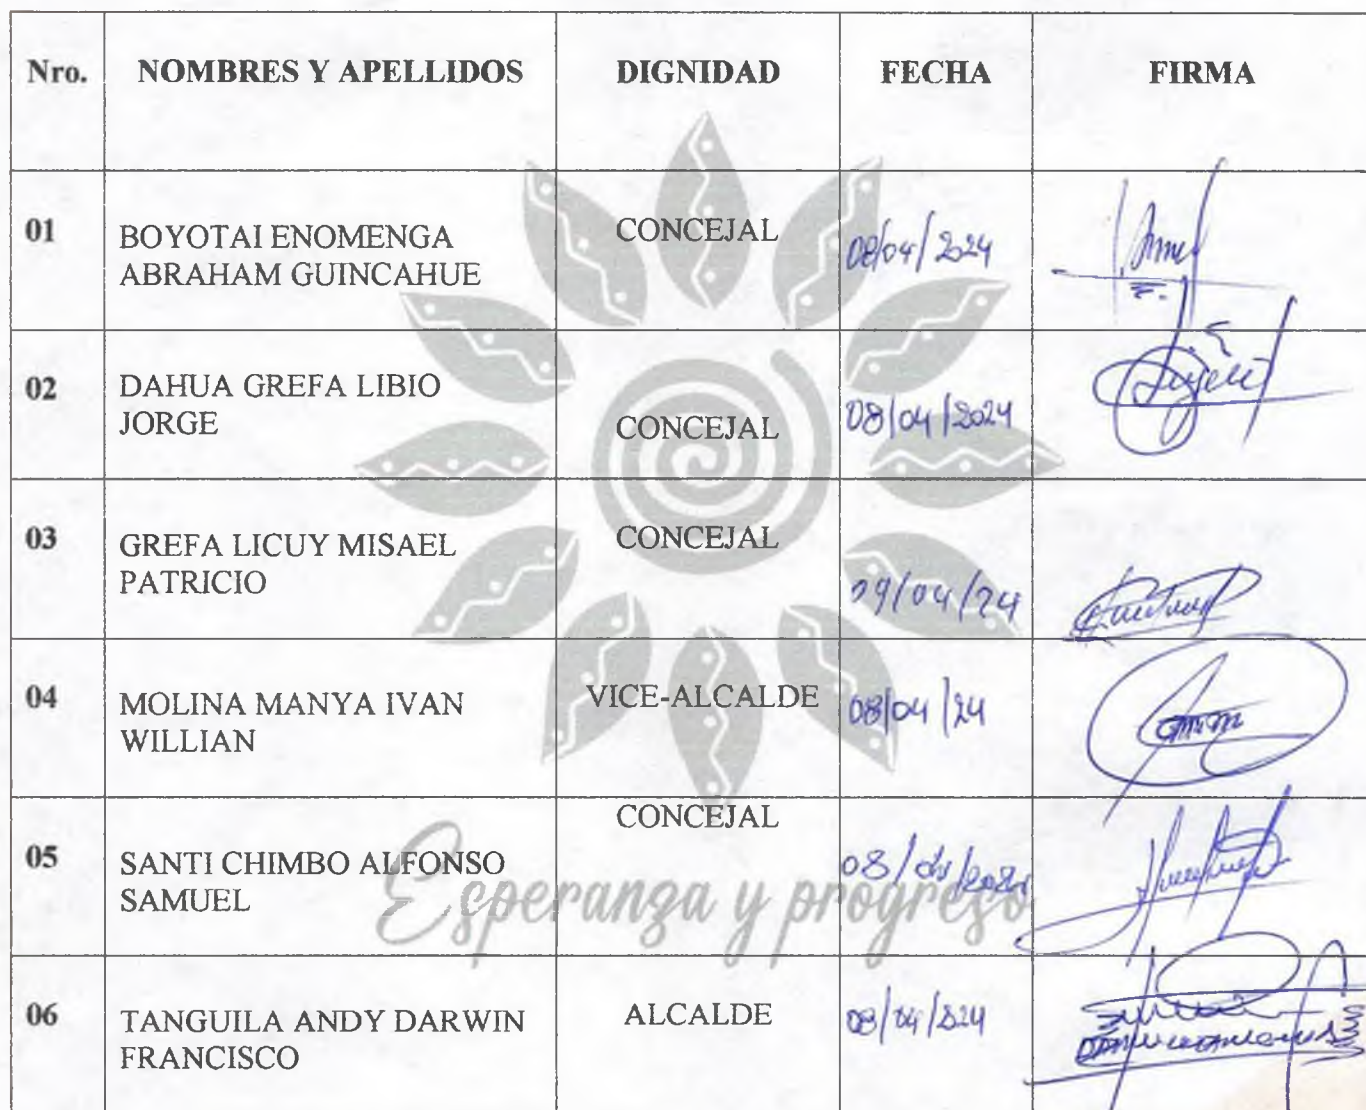 Nro. NOMBRES Y APELLIDOS DIGNIDAD FECHA FIRMA
01 BOYOTAI ENOMENGA ABRAHAM GUINCAHUE CONCEJAL 08/04/2024
02 DAHUA GREFA LIBIO JORGE CONCEJAL 08/04/2024
03 GREFA LICUY MISAEL PATRICIO CONCEJAL 09/04/24
04 MOLINA MANYA IVAN WILLIAN VICE-ALCALDE 08/04/24
05 SANTI CHIMBO ALFONSO SAMUEL CONCEJAL 08/04/2024
Esperanza y progreso
06 TANGUILA ANDY DARWIN FRANCISCO ALCALDE 08/04/2024